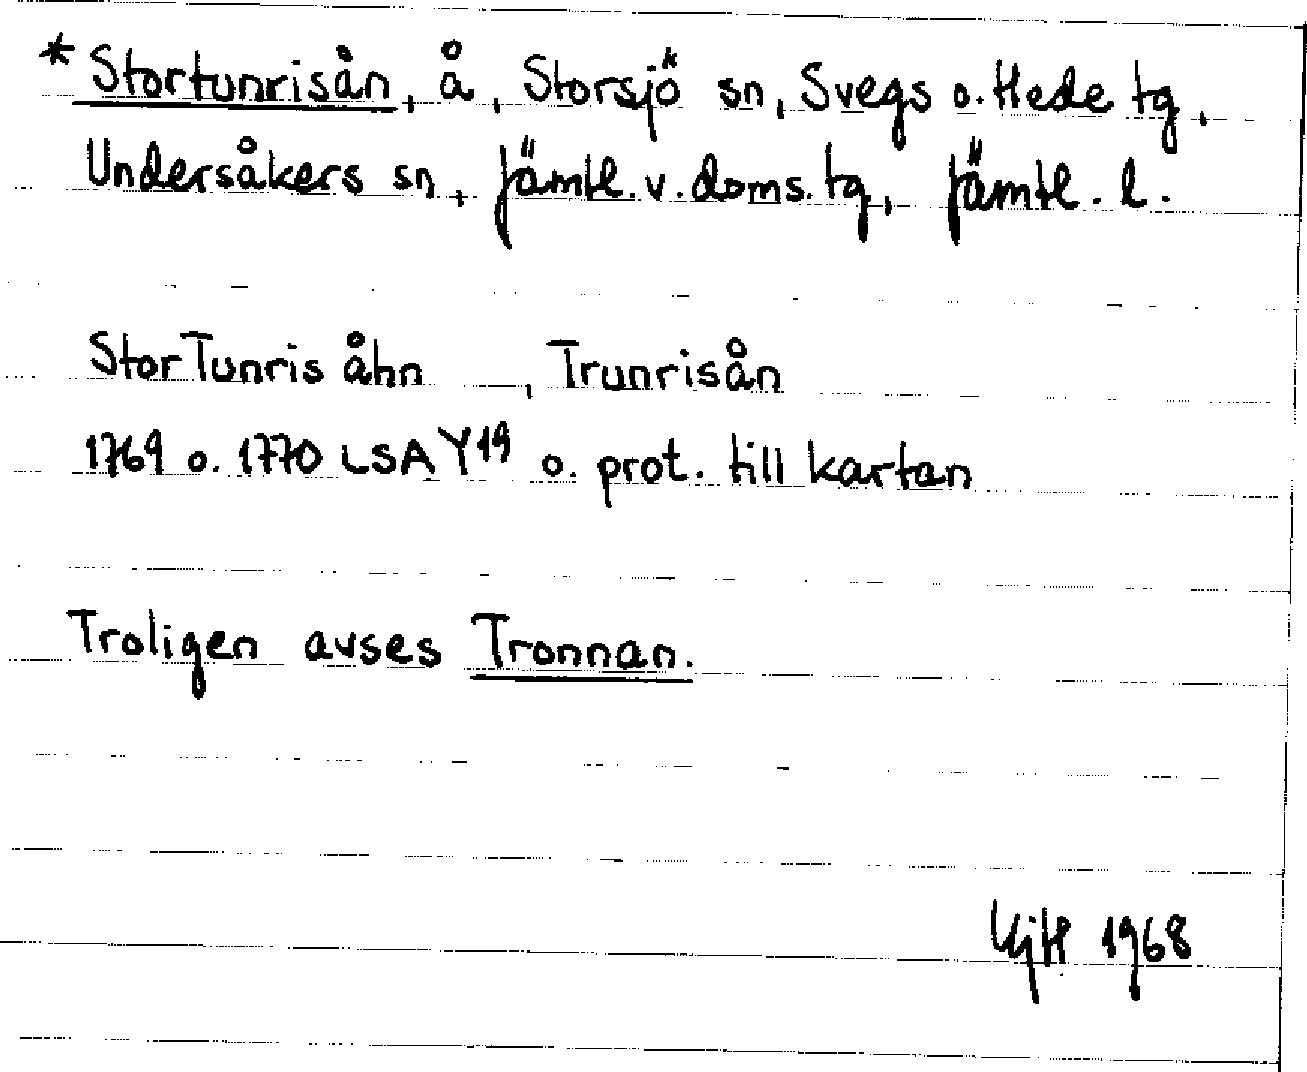 * Stortunrisån, å, Storsjö sn, Svegs o. Hede tg,
Undersåkers sn, Jämtl. v. doms. tg, Jämtl. l.
StorTunris åhn , Trunrisån
1769 o. 1770 LSA Y19 o. prot. till kartan
Troligen avses Tronnan.
1968